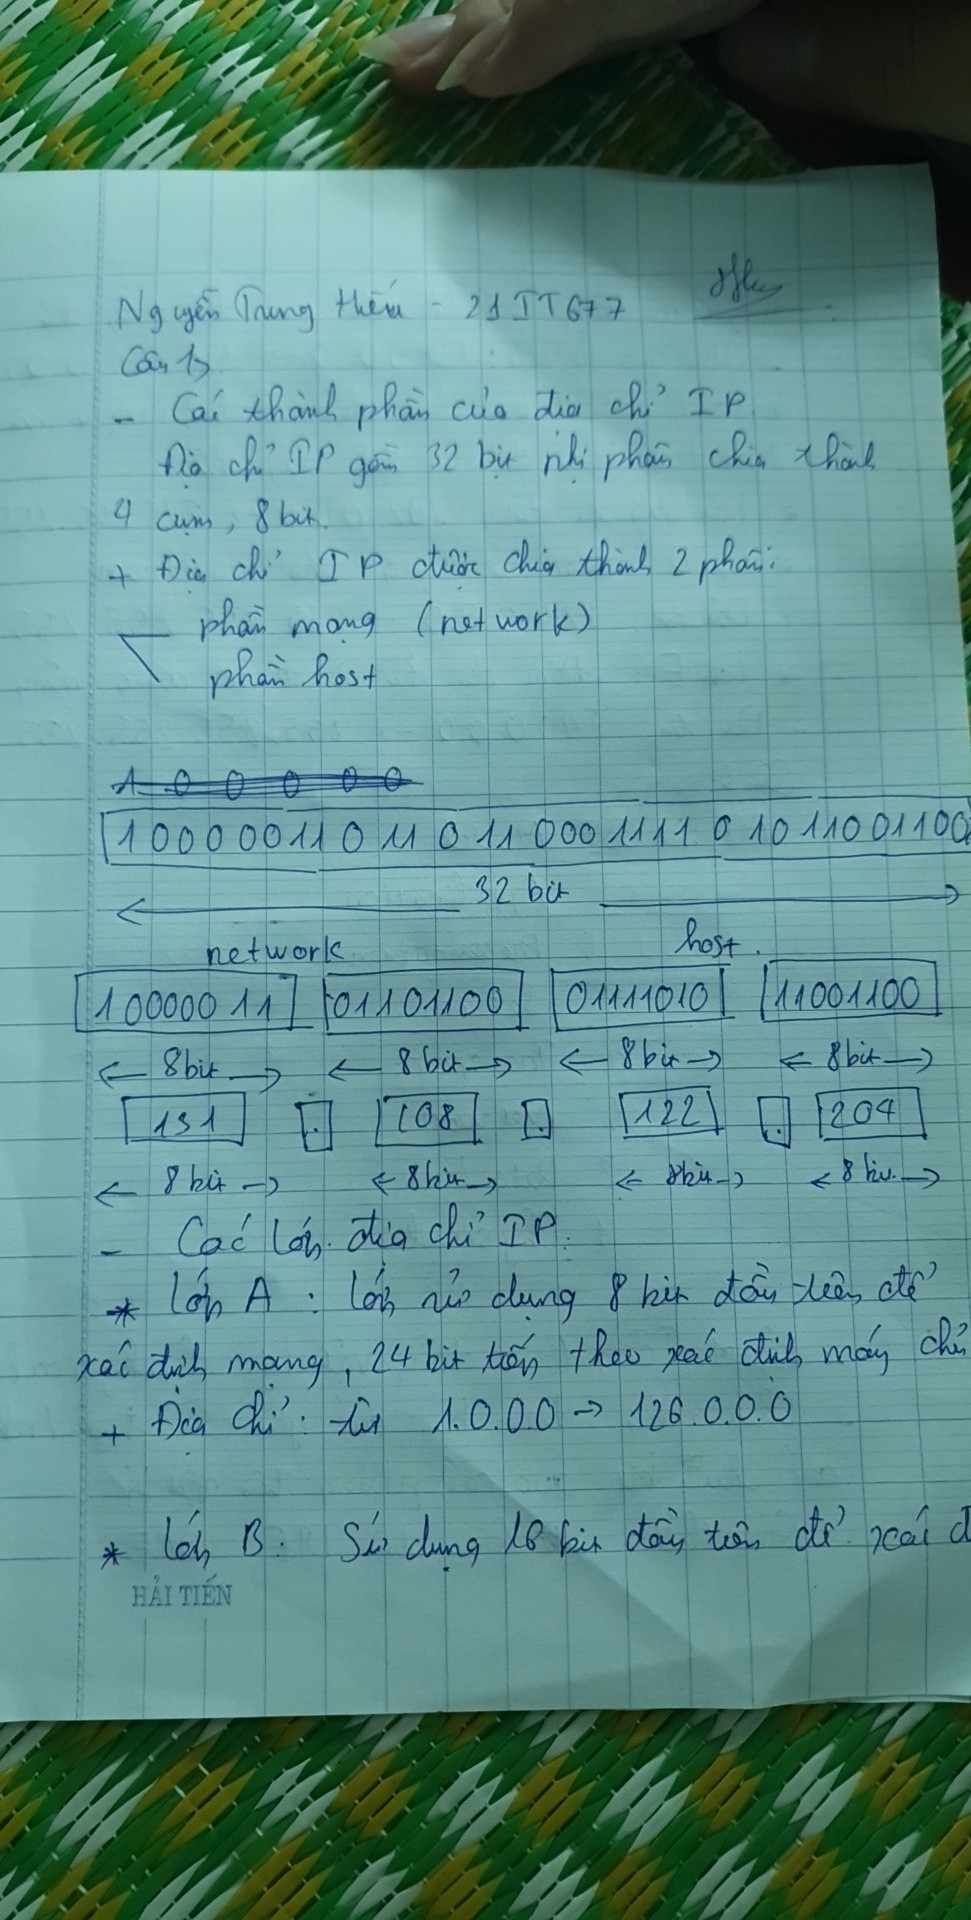 Nguyễn Trung Hiếu - 21IT677
Câu 1>
- Các thành phần của địa chỉ IP
Địa chỉ IP gồm 32 bit nhị phân chia thành
4 cụm, 8 bit.
+ Địa chỉ IP được chia thành 2 phần:
phần mạng (network)
phần host
1 0 0 0 0 0
10000011011011000111101011001100
32 bit
network host.
10000011 01101100 01111010 11001100
8bit 8bit 8bit 8bit
131 . 108 . 122 . 204
8bit 8bit 8bit 8bit
- Các lớp địa chỉ IP.
* lớp A: lớp sử dụng 8 bit đầu tiên để
xác định mạng, 24 bit tiếp theo xác định máy chủ
+ Địa chỉ: từ 1.0.0.0 → 126.0.0.0
* lớp B. Sử dụng 16 bit đầu tiên để xác đ
HẢI TIẾN